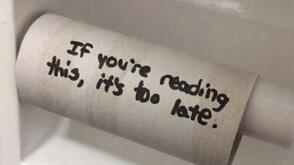 If you're reading
this, it's too late.